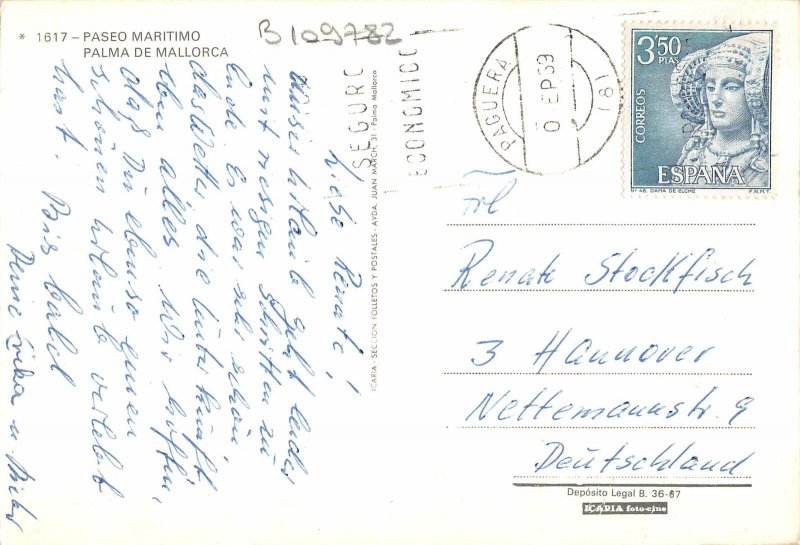 * 1617 – PASEO MARITIMO
PALMA DE MALLORCA
B109782
SEGURO
ECONOMICO
PAGUERA
EP 69
(81)
3'50
PTAS
CORREOS
ESPAÑA
Nº 48. DAMA DE ELCHE
F.N.M.T.
Liebe Renate!
Unser Urlaub geht leider
mit riesigen Schritten zu
Ende. Es war sehr schön,
das Wetter, die Unterkunft
eben alles. Wir hoffen,
daß Du ebenso einen
schönen Urlaub verlebt
hast. Bis bald
Deine Erika u.
ICARIA - SECCION FOLLETOS Y POSTALES - AVDA. JUAN MARCH, 31 - Palma Mallorca
Frl
Renate Stockfisch
3 Hannover
Nettemannstr. 9
Deutschland
Depósito Legal B. 36-67
ICARIA foto-cine